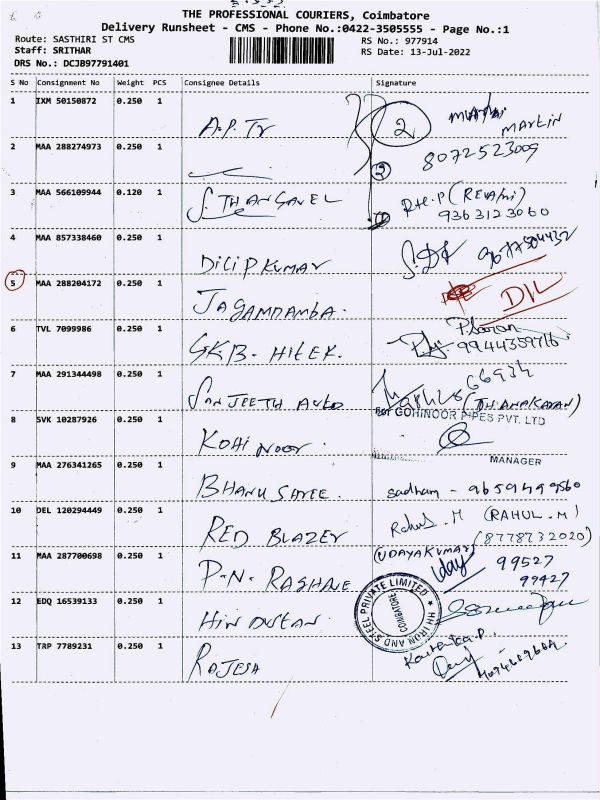 THE PROFESSIONAL COURIERS, Coimbatore
Delivery Runsheet - CMS - Phone No.:0422-3505555 - Page No.:1
Route: SASTHIRI ST CMS
RS No.: 977914
Staff: SRITHAR
RS Date: 13-Jul-2022
DRS No.: DCJB97791401
S No Consignment No Weight PCS Consignee Details Signature
1 IXM 50150872 0.250 1 A.P. Tr 2 MARTIN
2 MAA 288274973 0.250 1 8072523009
3 MAA 566109944 0.120 1 S THANGAVEL
9363123060
4 MAA 857338460 0.250 1 DILIP KUMAR
5 MAA 288204172 0.250 1 JAGAMDAMBA. D/L
6 TVL 7099986 0.250 1 GKB- HITEK.
9944359716
7 MAA 291344498 0.250 1 SANJEETH AUTO
66934
(DHANAKARAN)
For GOHINOOR PIPES PVT. LTD
8 SVK 10287926 0.250 1 KOHI NOOR
MANAGER
9 MAA 276341265 0.250 1 BHANU SHREE. sadham - 9659499560
10 DEL 120294449 0.250 1 RED BLAZER Rahul. M (RAHUL.M)
(8778732020)
11 MAA 287700698 0.250 1 P.N. RASHANE (UDAYAKUMAR) Uday 99527
99427
12 EDQ 16539133 0.250 1 HINDUSTAN
HH IRON AND STEEL PRIVATE LIMITED
COIMBATORE
13 TRP 7789231 0.250 1 RAJESH